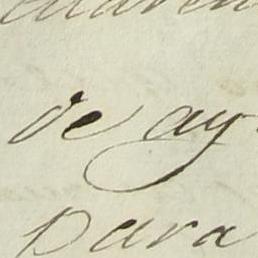 de ay
para